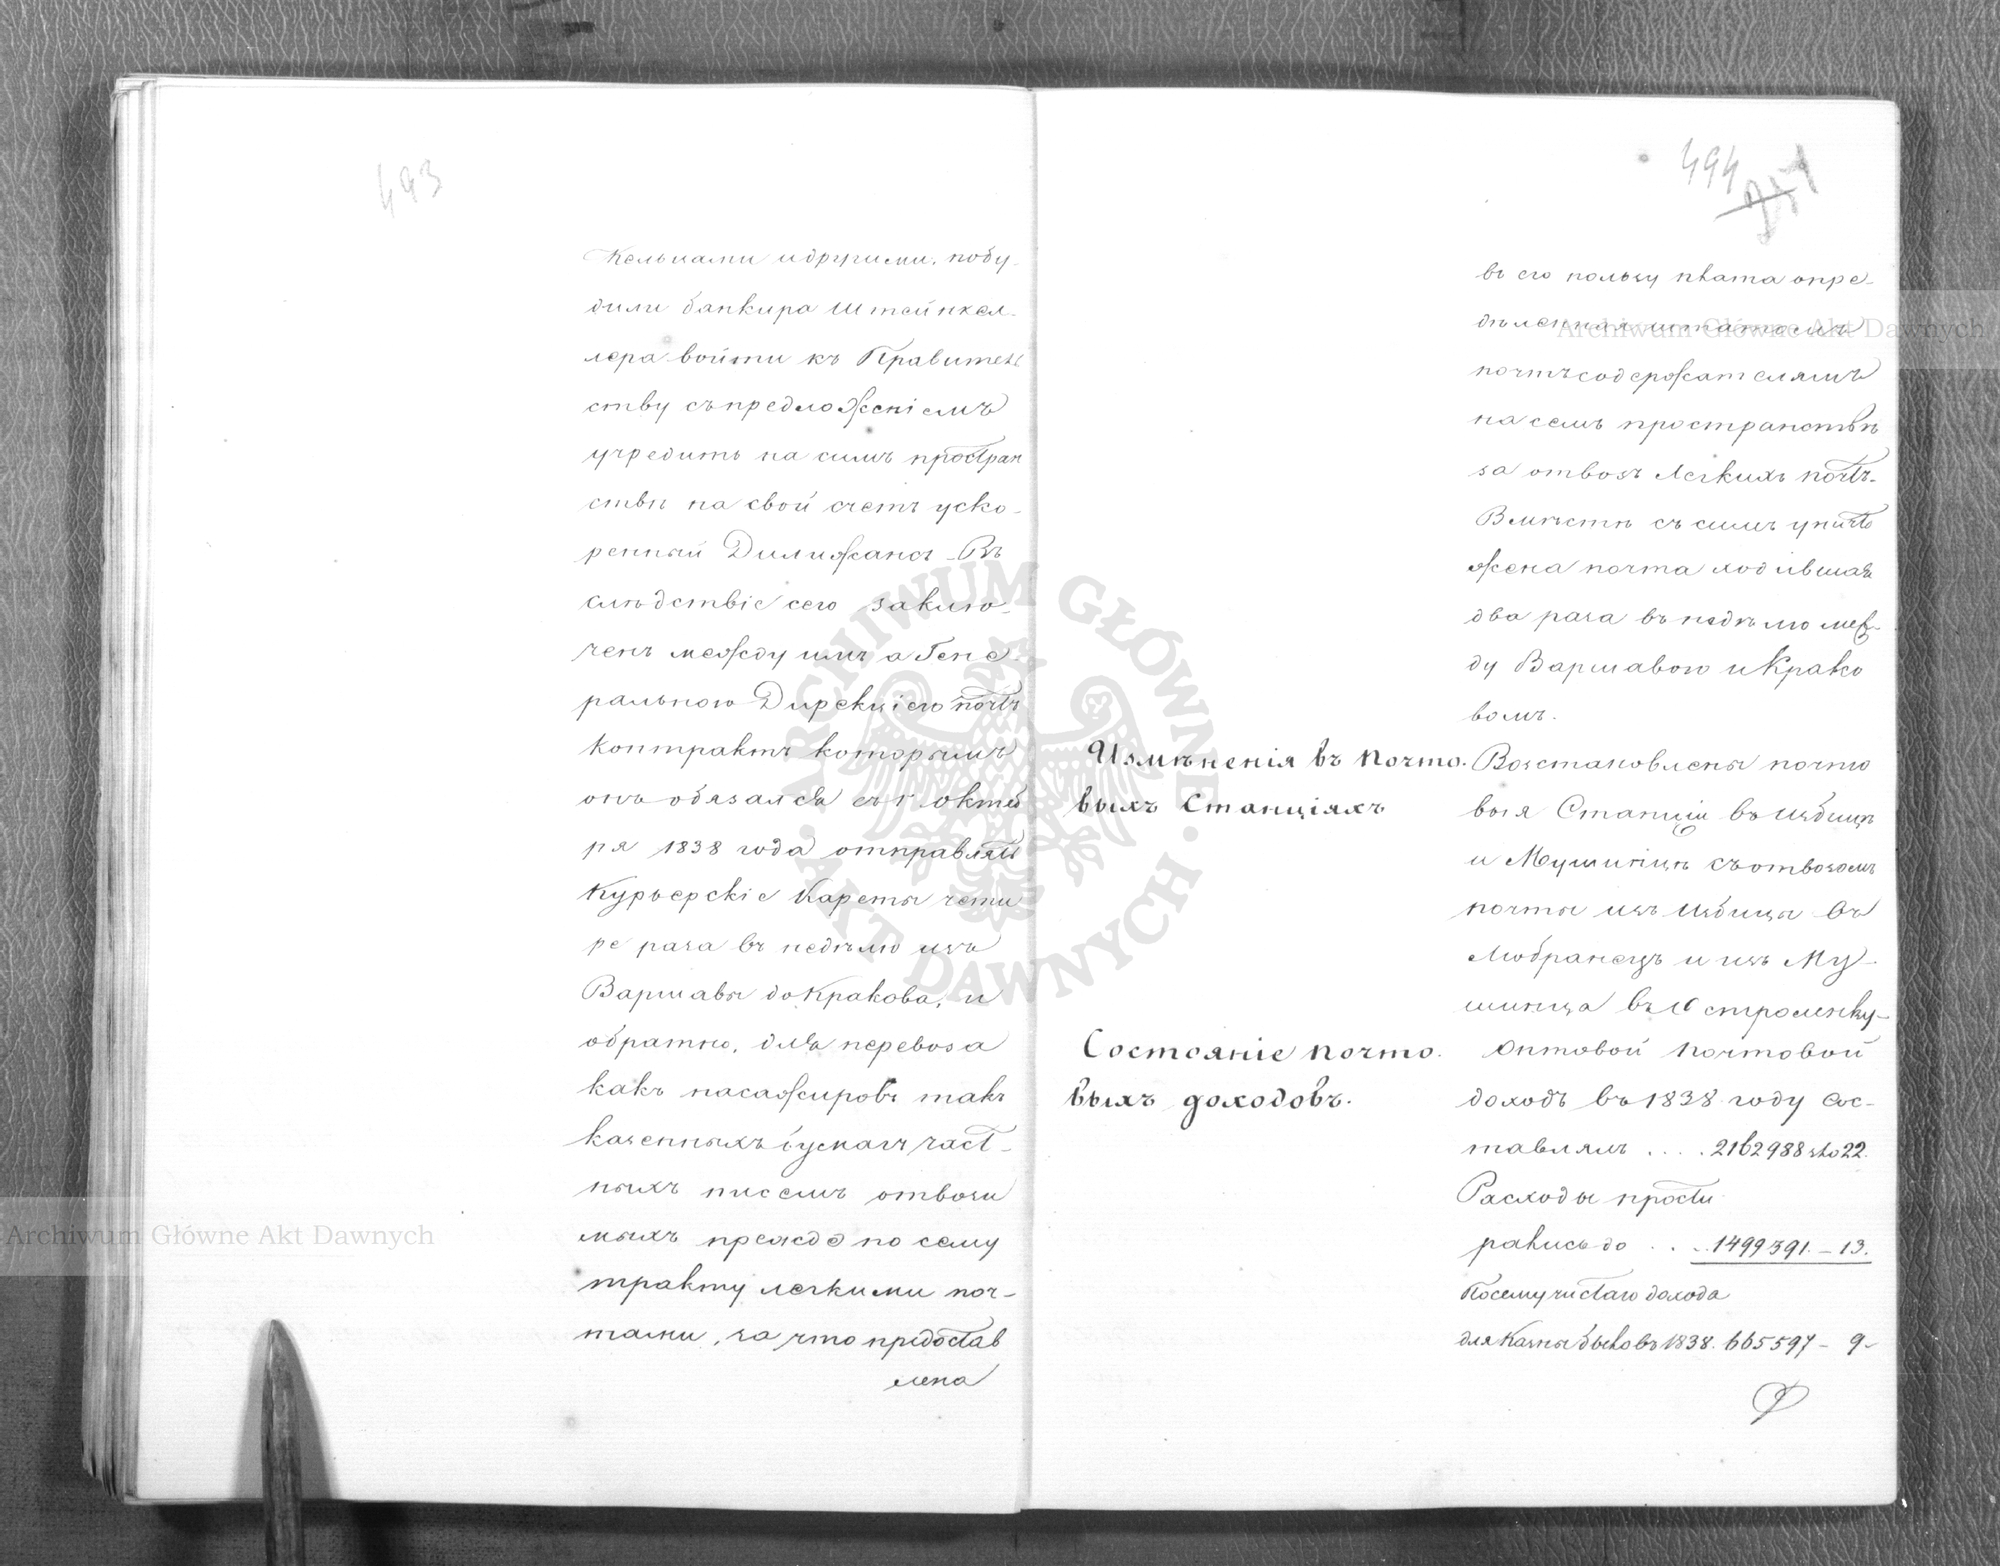 493
Кельцами и другими, побу-
дили банкира Штейнкел-
лера войти къ Правитель
ству съ предложеніемъ
учредить на симъ простран
ствѣ на свой счетъ уско-
ренный Дилижансъ. Въ
слѣдствіе сего заклю-
ченъ между имъ а Гене-
ральною Дирекціею почтъ
контрактъ которымъ
онъ обязался съ 1. октяб
ря 1838 года отправлять
Курьерскіе Кареты четы
ре раза въ недѣлю изъ
Варшавы до Кракова, и
обратно, для перевоза
какъ пасажировъ такъ
казенныхъ бумагъ част-
ныхъ писемъ отвози
мыхъ прежде по сему
тракту легкими поч-
тами, за что предостав
лена
494
251
въ его пользу плата опре-
дѣленная штатомъ
почтъ содержателямъ
на семъ пространствѣ
за отвозъ легкихъ почтъ.
Вмѣстѣ съ симъ уничто
жена почта ходившая
два раза въ недѣлю меж-
ду Варшавою и Крако
вомъ.
Измѣненія въ почто-
выхъ Станціяхъ
Возстановлены почто
выя Станціи въ Избицѣ
и Мушинцѣ съ отвозомъ
почты изъ Избицы въ
Любранецъ и изъ Му-
шинца въ Остроленку-
Состояніе почто-
выхъ доходовъ.
Оптовой почтовой
доходъ въ 1838 году сос-
тавлялъ . . . . 2162988 зло 22.
Расходы прости
рались до . . . 1499391. – 13.
Посему чистаго дохода
для Казны было въ 1838. 665597 – 9
Archiwum Główne Akt Dawnych
Archiwum Główne Akt Dawnych
ARCHIWUM GŁÓWNE · AKT DAWNYCH ·